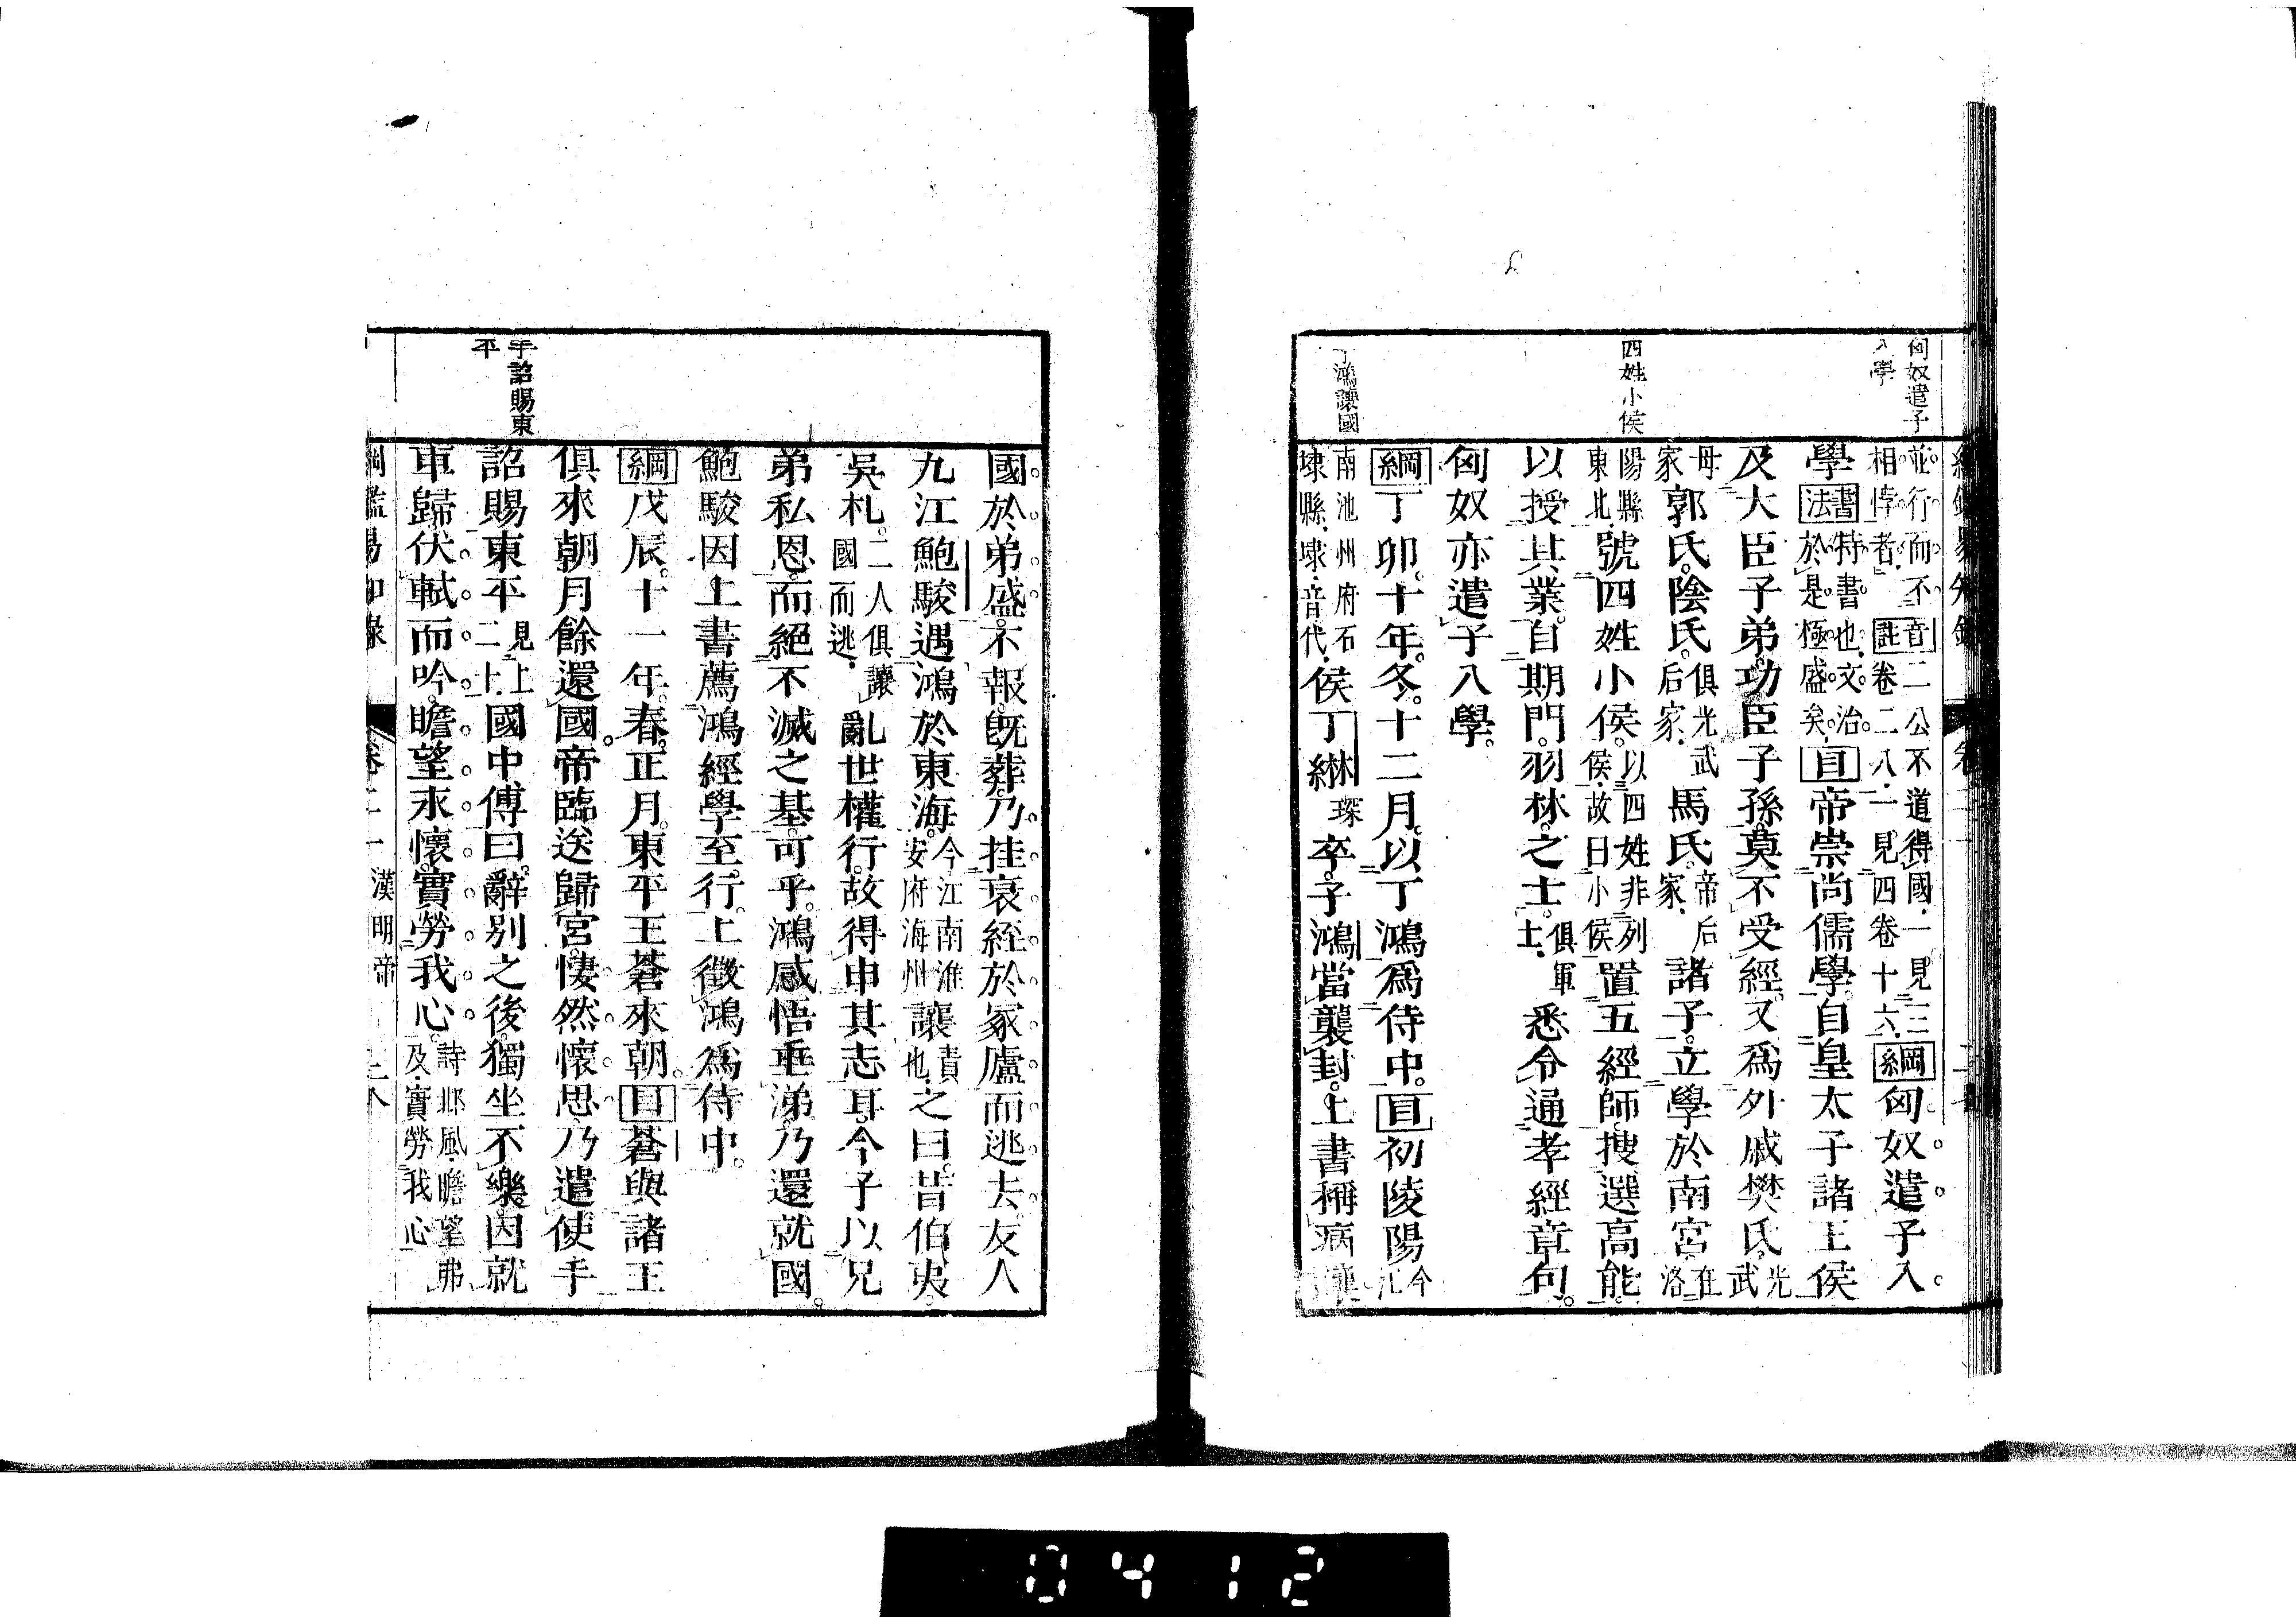 匈奴遣子
入學
四姓小侯
丁鴻讓國
並行而不
相悖者
音註
二公不道得國一見三
卷二八一見四卷十六
綱匈奴遣子入
學書法特書也文治
於是極盛矣目帝崇尚儒學自皇太子諸王侯
及大臣子弟功臣子孫莫不受經又爲外戚樊氏光
武
母
家郭氏陰氏俱光武
后家馬氏帝后
家諸子立學於南宮在
洛
陽縣
東北號四姓小侯以四姓非列
侯故曰小侯置五經師搜選高能
以授其業自期門羽林之士俱軍
士悉令通孝經章句
匈奴亦遣子入學
綱丁卯十年冬十二月以丁鴻爲侍中目初陵陽今
江
南池州府石
埭縣埭音代侯丁綝琛卒子鴻當襲封上書稱病讓
國於弟盛不報旣葬乃挂衰絰於冢廬而逃去友人
九江鮑駿遇鴻於東海今江南淮
安府海州讓責
也之曰昔伯夷
吳札二人俱讓
國而逃亂世權行故得申其志耳今子以兄
弟私恩而絕不滅之基可乎鴻感悟垂涕乃還就國
鮑駿因上書薦鴻經學至行上徵鴻爲侍中
綱戊辰十一年春正月東平王蒼來朝目蒼與諸王
俱來朝月餘還國帝臨送歸宮悽然懷思乃遣使手
詔賜東平見上
二十國中傅曰辭别之後獨坐不樂因就
車歸伏軾而吟瞻望永懷實勞我心詩邶風瞻望弗
及實勞我心
手詔賜東
平
綱鑑易知錄
漢明帝
0412